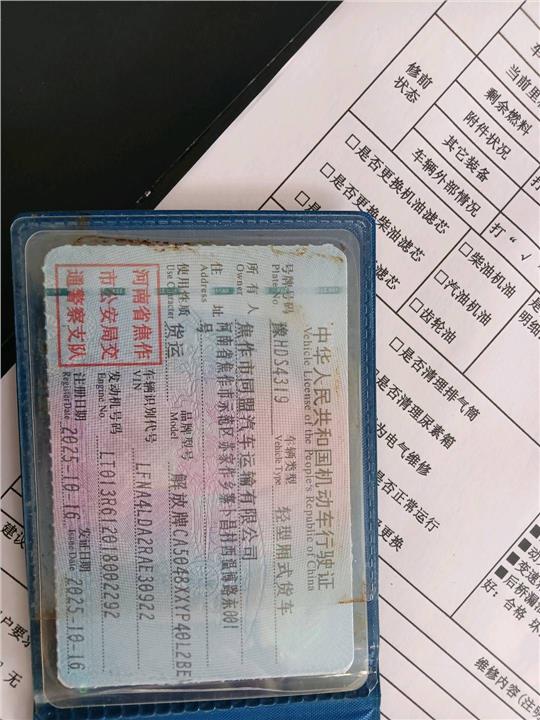 中华人民共和国机动车行驶证
Vehicle License of the People's Republic of China
号牌号码 豫HD34319 车辆类型 轻型厢式货车
Plate No. Vehicle Type
所有人 焦作市同盟汽车运输有限公司
Owner
住址 河南省焦作市示范区苏家作乡寨卜昌村西温博路东001
Address 号
使用性质 货运 品牌型号 解放牌CA5048XXYP40L2BE
Use Character Model
河南省焦作
市公安局交
通警察支队
车辆识别代号 LFNA4LDA2RAE30922
VIN
发动机号码 LT013R612018002292
Engine No.
注册日期 2025-10-16 发证日期 2025-10-16
Register Date Issue Date
修前
状态
当前里
剩余燃料
附件状况
其它装备
车辆外部情况
打“√
□是否更换机油滤芯
□是否更换柴油滤芯
滤芯
□柴油机油
□汽油机油
□齿轮油
明细
□是否清理排气筒
是否清理尿素箱
为电气维修
否正常运行
更换
■动
■变速
■后桥漏
好：合格
维修内容(注明
建议
户要求
无